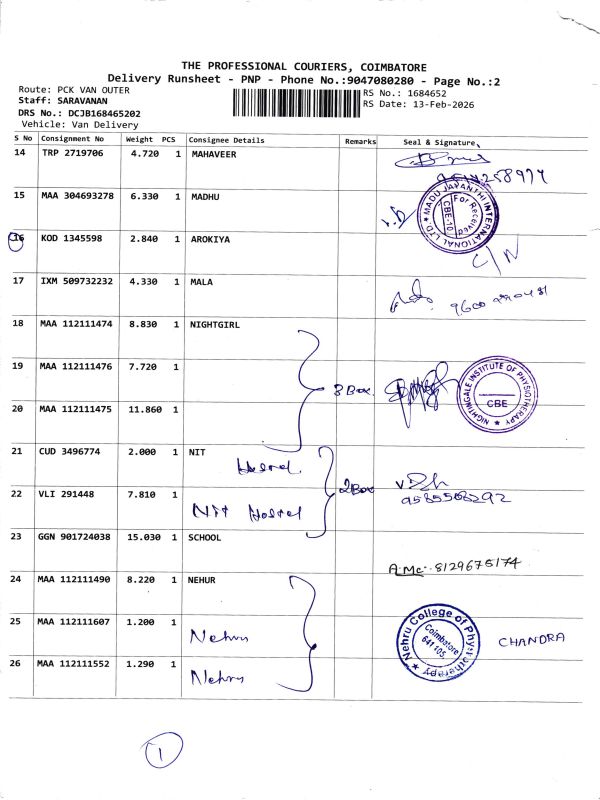 THE PROFESSIONAL COURIERS, COIMBATORE
Delivery Runsheet - PNP - Phone No.:9047080280 - Page No.:2
Route: PCK VAN OUTER
Staff: SARAVANAN
DRS No.: DCJB168465202
Vehicle: Van Delivery
RS No.: 1684652
RS Date: 13-Feb-2026
S No Consignment No Weight PCS Consignee Details Remarks Seal & Signature
14 TRP 2719706 4.720 1 MAHAVEER
15 MAA 304693278 6.330 1 MADHU
MADU JAYANTHI INTERNATIONAL LTD
For Received
CBE-10
16 KOD 1345598 2.840 1 AROKIYA
C/N
17 IXM 509732232 4.330 1 MALA
18 MAA 112111474 8.830 1 NIGHTGIRL
19 MAA 112111476 7.720 1
3 Box.
NIGHTINGALE INSTITUTE OF PHYSIOTHERAPY
CBE
20 MAA 112111475 11.860 1
21 CUD 3496774 2.000 1 NIT
Hostel
2 Box
9585568292
22 VLI 291448 7.810 1
Nit Hostel
23 GGN 901724038 15.030 1 SCHOOL
A.Mc. 8129675174
24 MAA 112111490 8.220 1 NEHUR
25 MAA 112111607 1.200 1
Nehru
Nehru College of Physiotherapy
Coimbatore
641 105
CHANDRA
26 MAA 112111552 1.290 1
Nehru
1